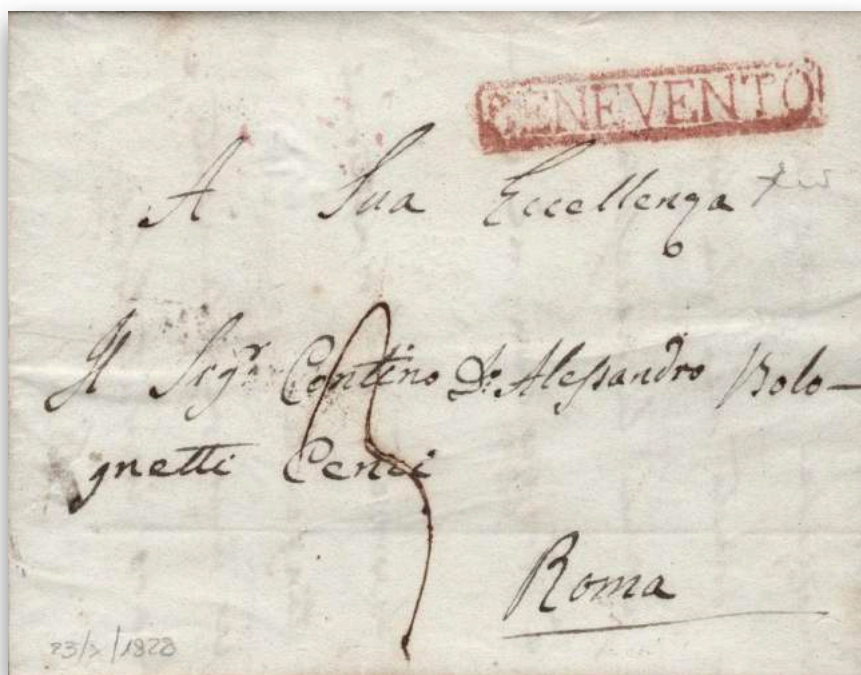 BENEVENTO
A Sua Eccellenza
Il Sigr Contino Dn Alessandro Bolo-
gnetti Cenci
Roma